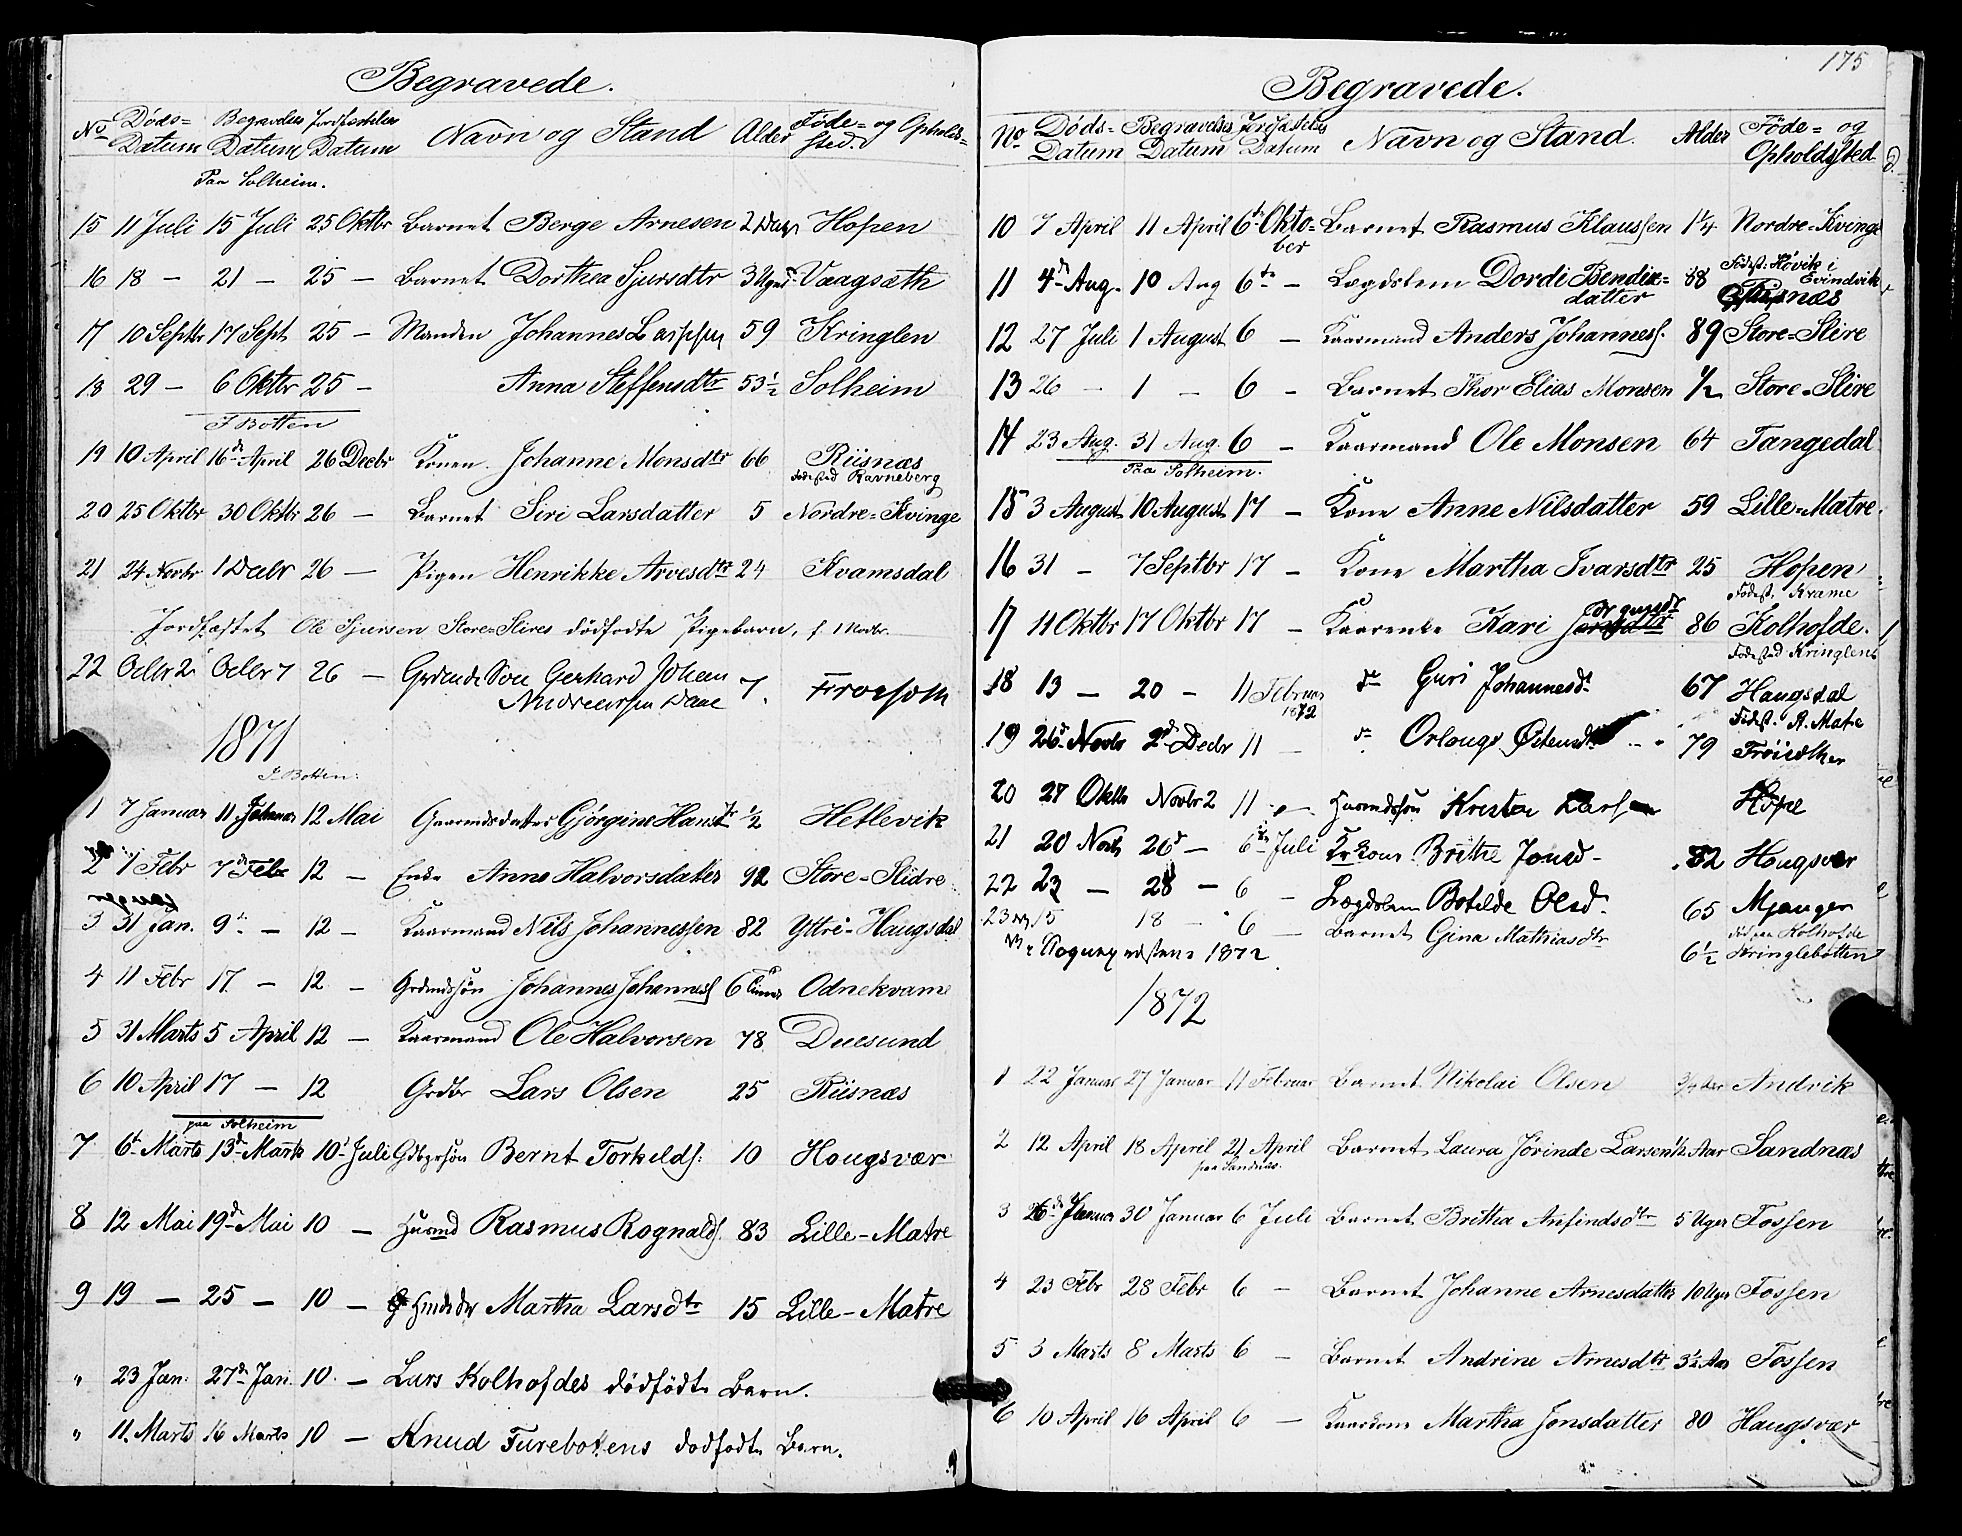 Begravede.
No Døds-Datum Begravelses Datum Jordfæstelses Datum Navn og Stand Alder Føde- og Opholds-sted.
Paa Solheim.
15 11 Juli 15 Juli 25 Oktbr Barnet Berge Arnesen 2 Dage Hopen
16 18 - 21 - 25 - Barnet Dorthea Sjursdtr 3 Uger Vaagsæth
17 10 Septbr 17 Sept 25 - Manden Johannes 59 Kringlen
18 29 - 6 Oktbr 25 - Anna Steffensdtr 53 1/2 Solheim
I Botten
19 10 April 16de April 26 Decbr Konen Johanne Monsdtr 66 Riisnæs
Fødested Ravneberg
20 25 Oktbr 30 Oktbr 26 - Barnet Siri Larsdatter 5 Nordre-Kvinge
21 24 Novbr 1 Decbr 26 - Pigen Henrikke Arvesdtr 24 Kvamsdal
Jordfæstet Ole Sjursen Store-Slires dødfødte Pigebarn, f. 1 Novbr.
22 26 - Søn Gerhard Johan
Daae 7.
1871
I Botten:
1 7 Januar 11 Januar 12 Mai Gaardmdsdatter Gjørgine Hansdtr 1/2 Hetlevik
2 1 Febr 7de Febr 12 - Enke Anna Halvorsdatter 92 Store-Slidre
3 31 Jan. 9de - 12 - Kaarmand Nils Johannessen 82 Yttre-Haugsdal
4 11 Febr 17 - 12 - Grdmdssøn Johannes Johanness 6 Timer Odnekvame
5 31 Marts 5 April 12 - Kaarmand Ole Halvorsen 78 Duesund
6 10 April 17 - 12 Grdbr Lars Olsen 25 Riisnæs
paa Solheim
7 6te Marts 13de Marts 10de Juli Gdbrsøn Bernt Torkilds. 10 Hougsvær
8 12 Mai 19de Mai 10 - Husmd Rasmus Rognalds. 83 Lille-Matre
9 19 - 25 - 10 - Martha Larsdtr 15 Lille-Matre
" 23 Jan. 27de Jan. 10 - Lars Kolhofdes dødfødte Barn.
" 11. Marts 16 Marts 10 - Knud Turebotens dødfødte Barn.
175
Begravede.
No Døds-Datum Begravelses Datum Jordfæstelses Datum Navn og Stand. Alder Føde- og Opholdssted
10 7 April 11 April 6te Oktober Barnet Rasmus Klaussen 1 1/4 Nordre-Kvinge
11 4de Aug. 10 Aug 6te - Lægdslem Dordi Bendixdatter 88 Fødest. Høvik i Evindvik
Riisnæs
12 27 Juli 1 August 6 - Kaarmand Anders Johanness. 89 Store-Slire
13 26 - 1 - 6 - Barnet Thor Elias Monsen 1/2 Store-Slire
14 23 Aug. 31 Aug. 6 - Kaarmand Ole Monsen 64 Tangedal
Paa Solheim.
15 3 August 10 August 17 - Kone Anne Nilsdatter 59 Lille-Matre.
16 31 - 7 Septbr 17 - Kone Martha Ivarsdtr 25 Hopen
Fødest. Krame
17 11 Oktbr 17 Oktbr 17 - Kaarenke Kari 86 Kolhofde.
Fødested Kringlen
18 13 - 20 - 11 Februar 1872 do Guri Johannesdr 67 Haugsdal
Fødest. Matre
19 26de Novbr 2den Decbr 11 - do Orlaug Østensdtr 79
20 27 Oktbr Novbr 2 11 - Husmdssøn Larsen Hope
21 20 Novb 26de - 6te Juli Brithe Jonsd - 82 Hougsvær
22 23 - 28 - 6 - Lægdslem Botilde Olsd. 65 Mjanger
død paa Kolhofde
23 15 18 - 6 - Barnet Gina Mathiasdtr 6 1/2 Kringlebotten
1872
1872
1 22 Januar 27 Januar 11 Februar Barnet Nikolai Olsen 3/4 Aar Andvik
2 12 April 18 April 21 April Barnet Laura Jørinde Larsen 1/2 Aar Sandnæs
paa Sandnæs.
3 26de Januar 30 Januar 6 Juli Barnet Britha Anfindsdtr 5 Uger Fossen
4 23 Febr 28 Febr 6 - Barnet Johanne Arnesdatter 10 Uger Fossen
5 3 Marts 8 Marts 6 - Barnet Andrine Arnesdtr 3 1/2 Aar Fossen
6 10 April 16 April 6 - Kaarkone Martha Jonsdatter 80 Haugsvær